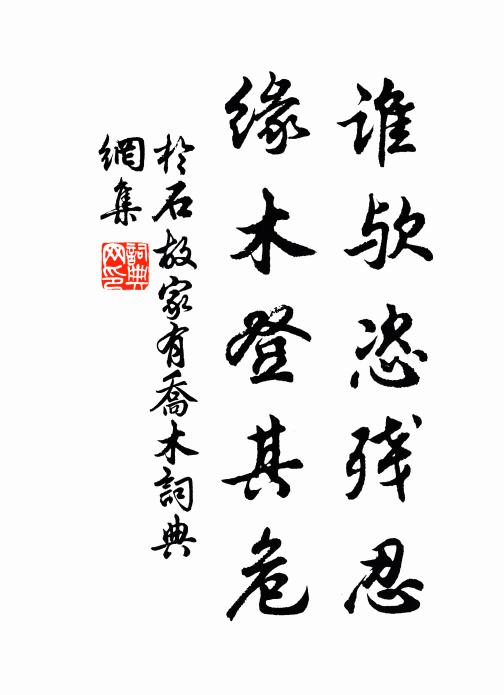 谁欤恣残忍
缘木登其危
於石故家有喬木詞典
網集
詞典網印